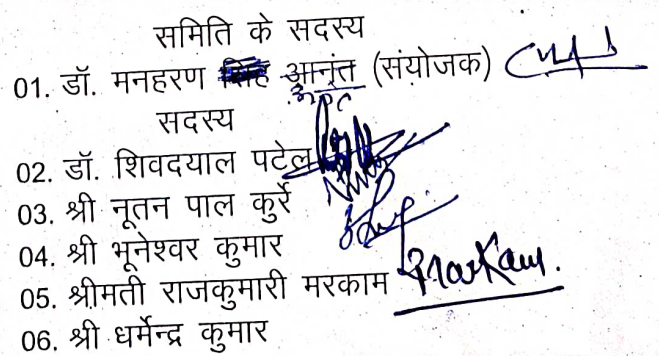 समिति के सदस्य
01. डॉ. मनहरण सिंह आनंत (संयोजक)
सदस्य
02. डॉ. शिवदयाल पटेल
03. श्री नूतन पाल कुर्रे
04. श्री भूनेश्वर कुमार
05. श्रीमती राजकुमारी मरकाम
06. श्री धर्मेन्द्र कुमार